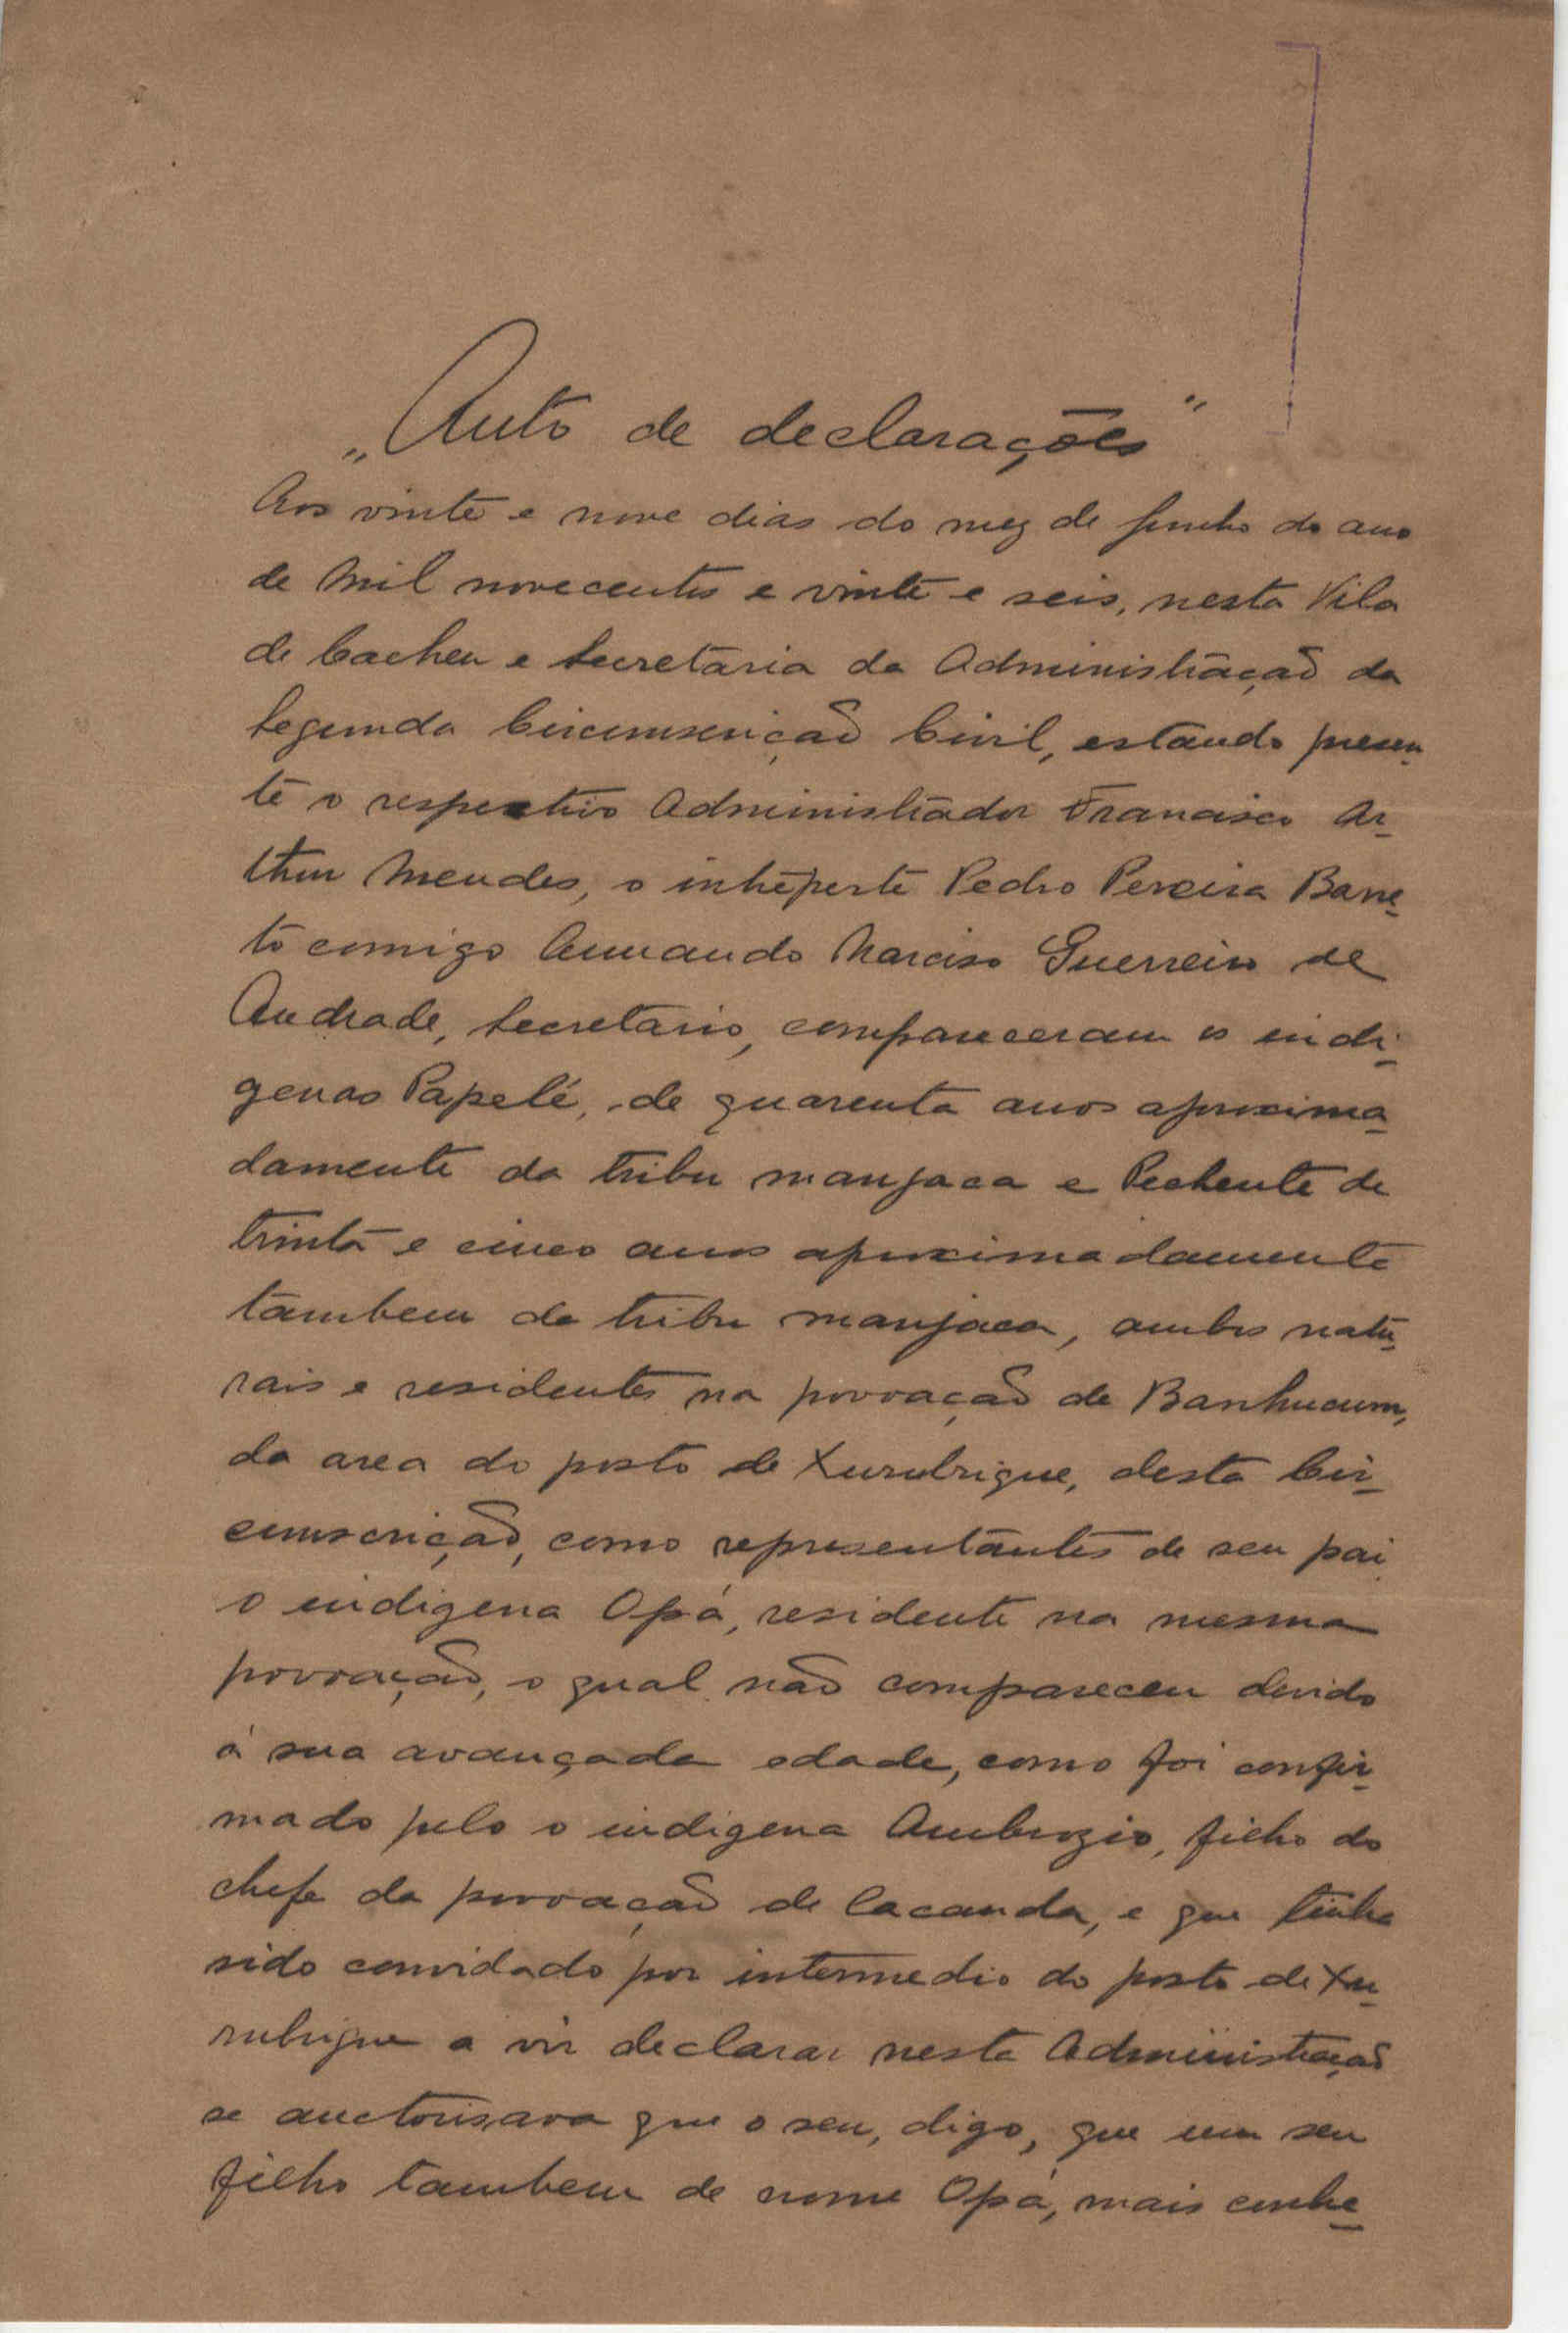 „Auto de declarações"
Aos vinte e nove dias do mez de Junho do ano
de Mil novecentos e vinte e seis, nesta Vila
de Cacheu e Secretaria da Administração da
Segunda Circumscrição Civil, estando presen-
te o respectivo Administrador Francisco Ar-
thur Mendes, o intreperte Pedro Pereira Barre-
to comigo Armando Narciso Guerreiro de
Andrade, Secretario, compareceram os indi-
genas Papelé, de quarenta anos aproxima-
damente da tribu manjaca e Pechente de
trinta e cinco anos aproximadamente
tambem da tribu manjaca, ambos natu-
rais e residentes na povoação de Banhucum,
da area do posto de Xurubrique, desta Cir-
cumscrição, como representantes de seu pai
o indigena Opá, residente na mesma
povoação, o qual não compareceu devido
á sua avançada edade, como foi confir-
mado pelo o indigena Ambrozio, filho do
chefe da povoação de Cacanda, e que tinha
sido convidado por intermedio do posto de Xu-
rubrique a vir declarar nesta Administração
se auctorisava que o seu, digo, que um seu
filho tambem de nome Opá, mais conhe-